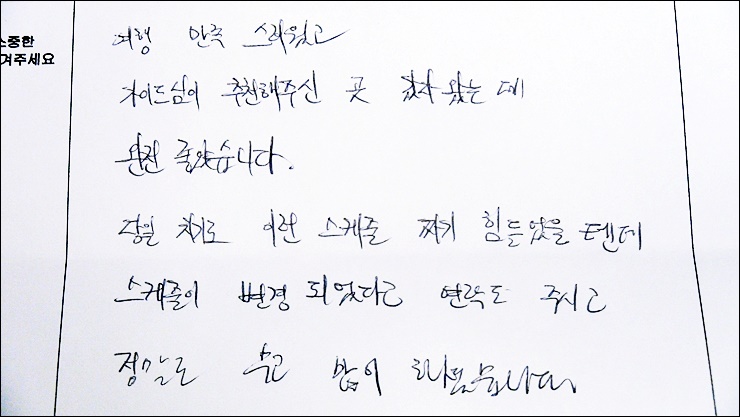 소중한
겨주세요
여행 만족 스러웠고
가이드님이 추천해주신 곳 갔다 왔는데
완전 좋았습니다.
당일 치기로 이런 스케줄 짜기 힘들었을 텐데
스케줄이 변경 되었다고 연락도 주시고
정말로 수고 많이